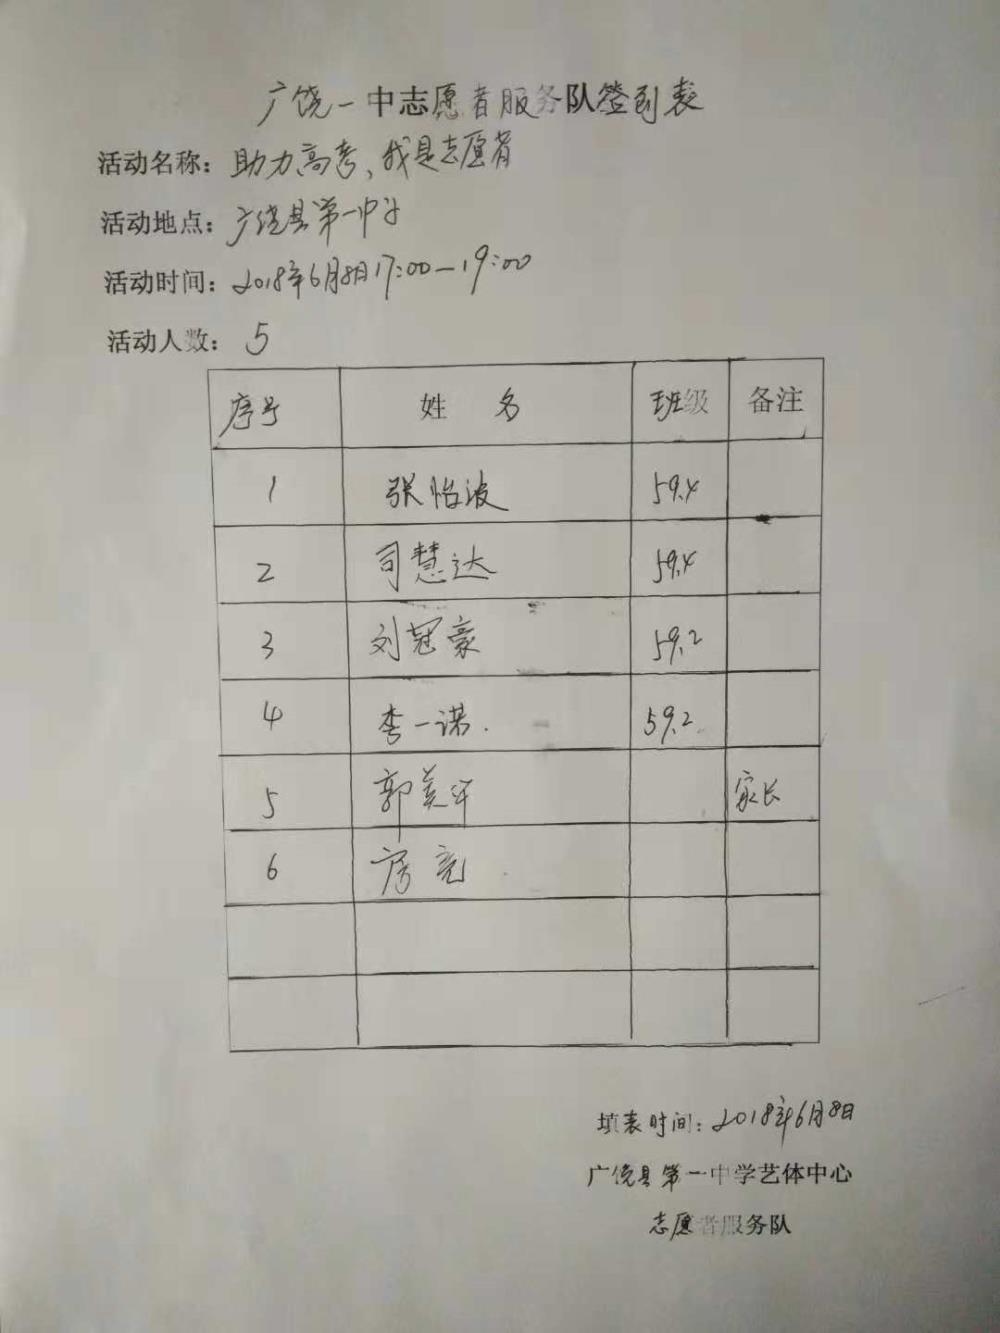 广饶一中志愿者服务队签到表
活动名称：助力高考、我是志愿者
活动地点：广饶县第一中学
活动时间：2018年6月8日17:00—19:00
活动人数：5
序号 姓名 班级 备注
1 张怡波 59.4
2 司慧达 59.4
3 刘冠豪 59.2
4 李一诺. 59.2
5 郭美华 家长
6 房亮
填表时间：2018年6月8日
广饶县第一中学艺体中心
志愿者服务队